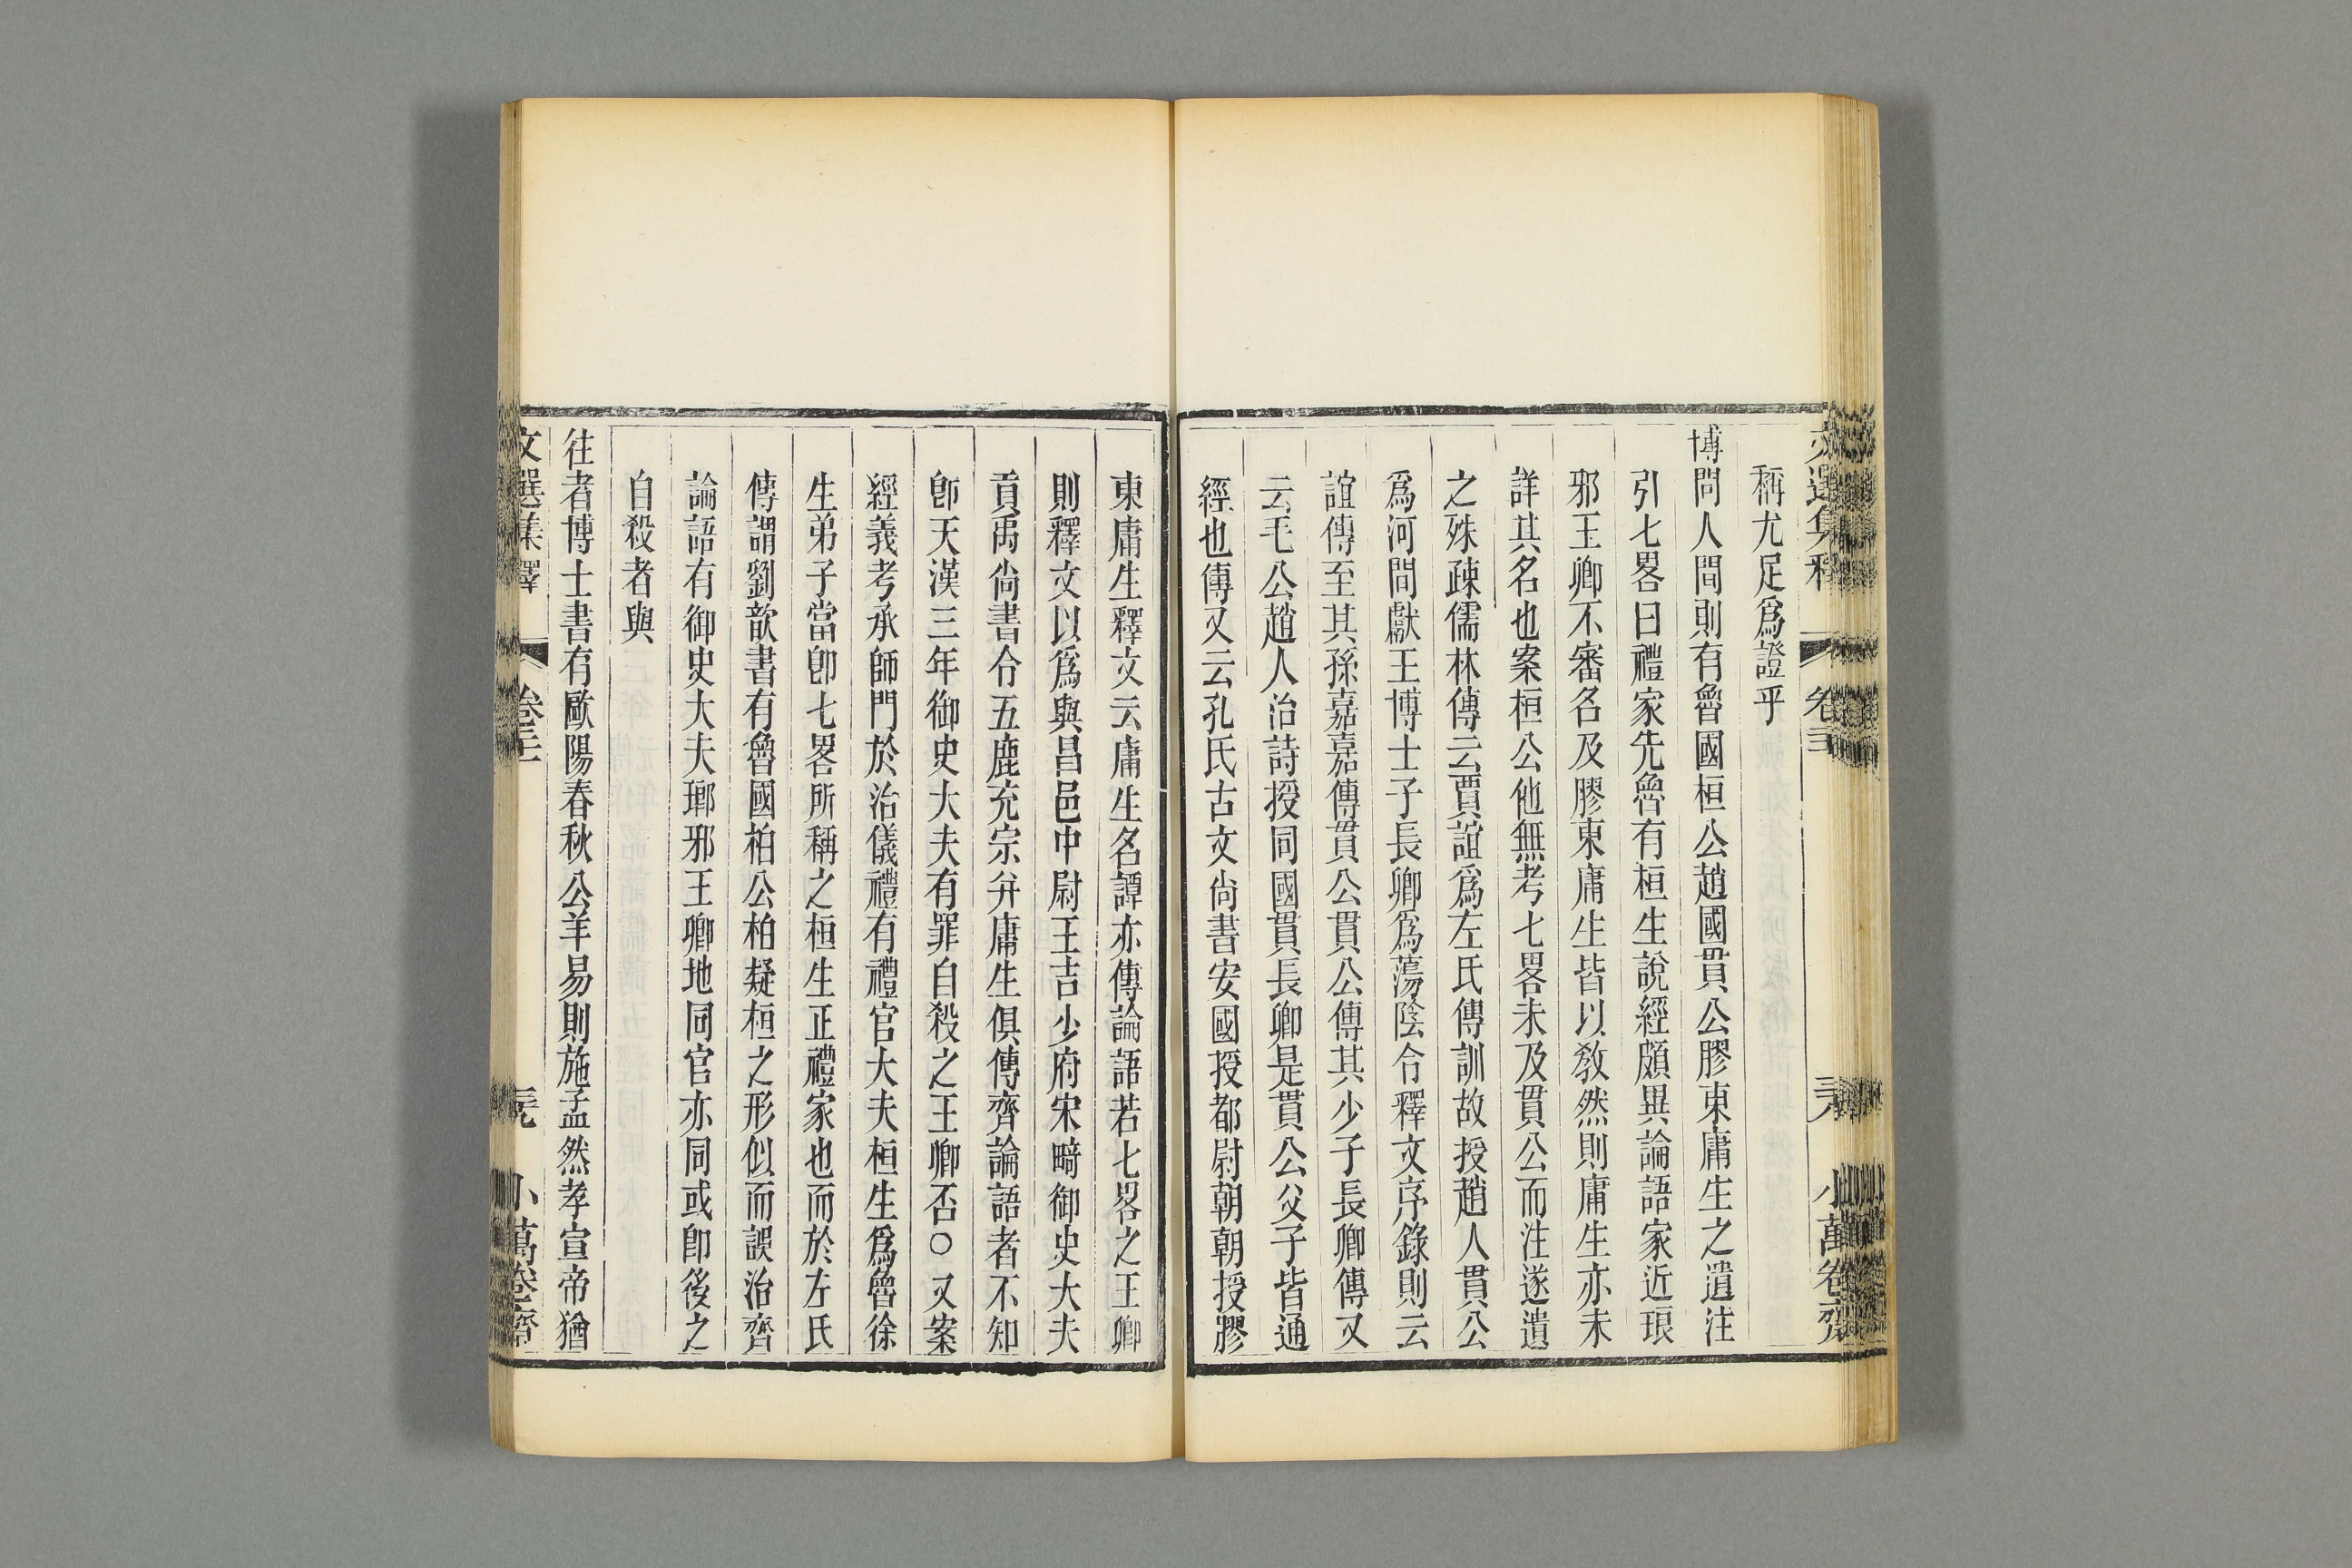 稱尤足爲證乎
博問人間則有魯國桓公趙國貫公膠東庸生之遺注
引七畧曰禮家先魯有桓生說經頗異論語家近琅
邪王卿不審名及膠東庸生皆以敎然則庸生亦未
詳其名也案桓公他無考七畧未及貫公而注遂遺
之殊疎儒林傳云賈誼爲左氏傳訓故授趙人貫公
爲河間獻王博士子長卿爲蕩陰令釋文序錄則云
誼傳至其孫嘉嘉傳貫公貫公傳其少子長卿傳又
云毛公趙人治詩授同國貫長卿是貫公父子皆通
經也傳又云孔氏古文尙書安國授都尉朝朝授膠
東庸生釋文云庸生名譚亦傳論語若七畧之王卿
則釋文以爲與昌邑中尉王吉少府宋畸御史大夫
貢禹尙書令五鹿充宗幷庸生俱傳齊論語者不知
卽天漢三年御史大夫有罪自殺之王卿否○又案
經義考承師門於治儀禮有禮官大夫桓生爲魯徐
生弟子當卽七畧所稱之桓生正禮家也而於左氏
傳謂劉歆書有魯國柏公柏疑桓之形似而誤治齊
論語有御史大夫瑯邪王卿地同官亦同或卽後之
自殺者與
往者博士書有歐陽春秋公羊易則施孟然孝宣帝猶
文選集釋
卷二三
小萬卷齋